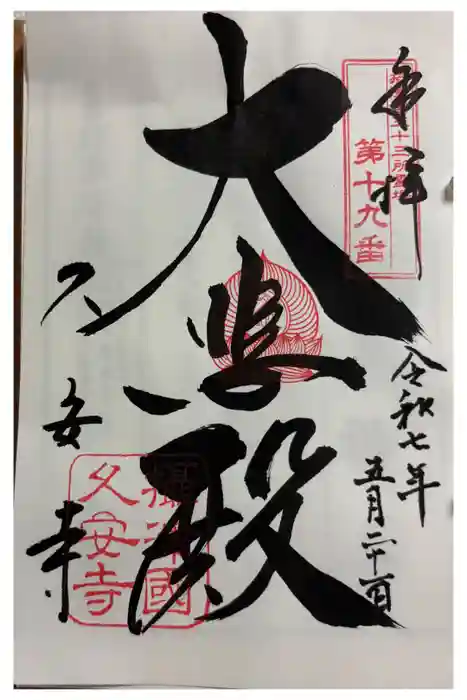 奉拝
十三所霊場
第十九番
令和七年
五月二十一日
大悲殿
久安寺
攝津國
久安寺